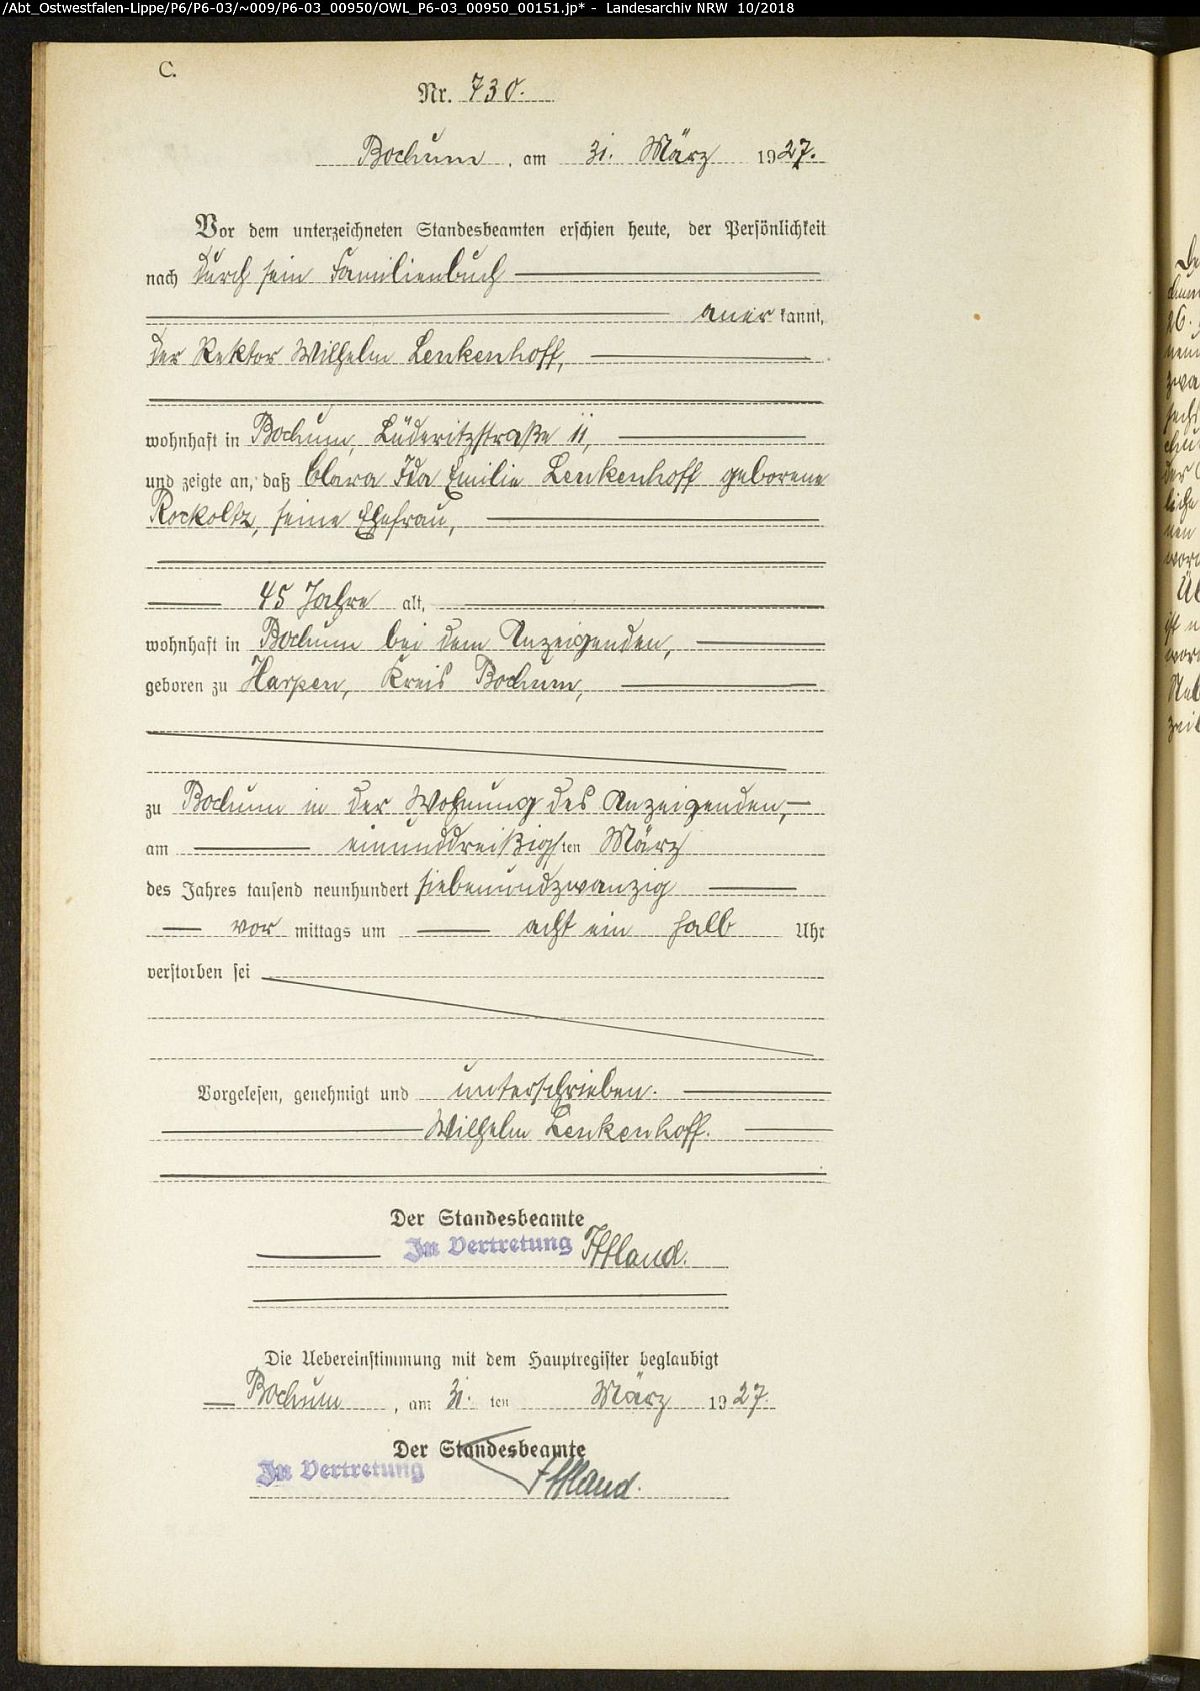 /Abt_Ostwestfalen-Lippe/P6/P6-03/~009/P6-03_00950/OWL_P6-03_00950_00151.jp* - Landesarchiv NRW 10/2018
C.
Nr. 730.
Bochum, am 31. März 1927.
Vor dem unterzeichneten Standesbeamten erschien heute, der Persönlichkeit
nach durch sein Familienbuch
anerkannt,
der Rektor Wilhelm Lenkenhoff,
wohnhaft in Bochum, Lüderitzstraße 11,
und zeigte an, daß Clara Ida Emilie Lenkenhoff geborene
Rockoltz, seine Ehefrau,
45 Jahre alt,
wohnhaft in Bochum bei dem Anzeigenden,
geboren zu Harpen, Kreis Bochum,
zu Bochum in der Wohnung des Anzeigenden,
am einunddreißigsten März
des Jahres tausend neunhundert siebenundzwanzig
vor mittags um acht ein halb Uhr
verstorben sei
Vorgelesen, genehmigt und unterschrieben.
Wilhelm Lenkenhoff.
Der Standesbeamte
In Vertretung Iffland.
Die Uebereinstimmung mit dem Hauptregister beglaubigt
Bochum, am 31. ten März 1927.
Der Standesbeamte
In Vertretung Iffland.